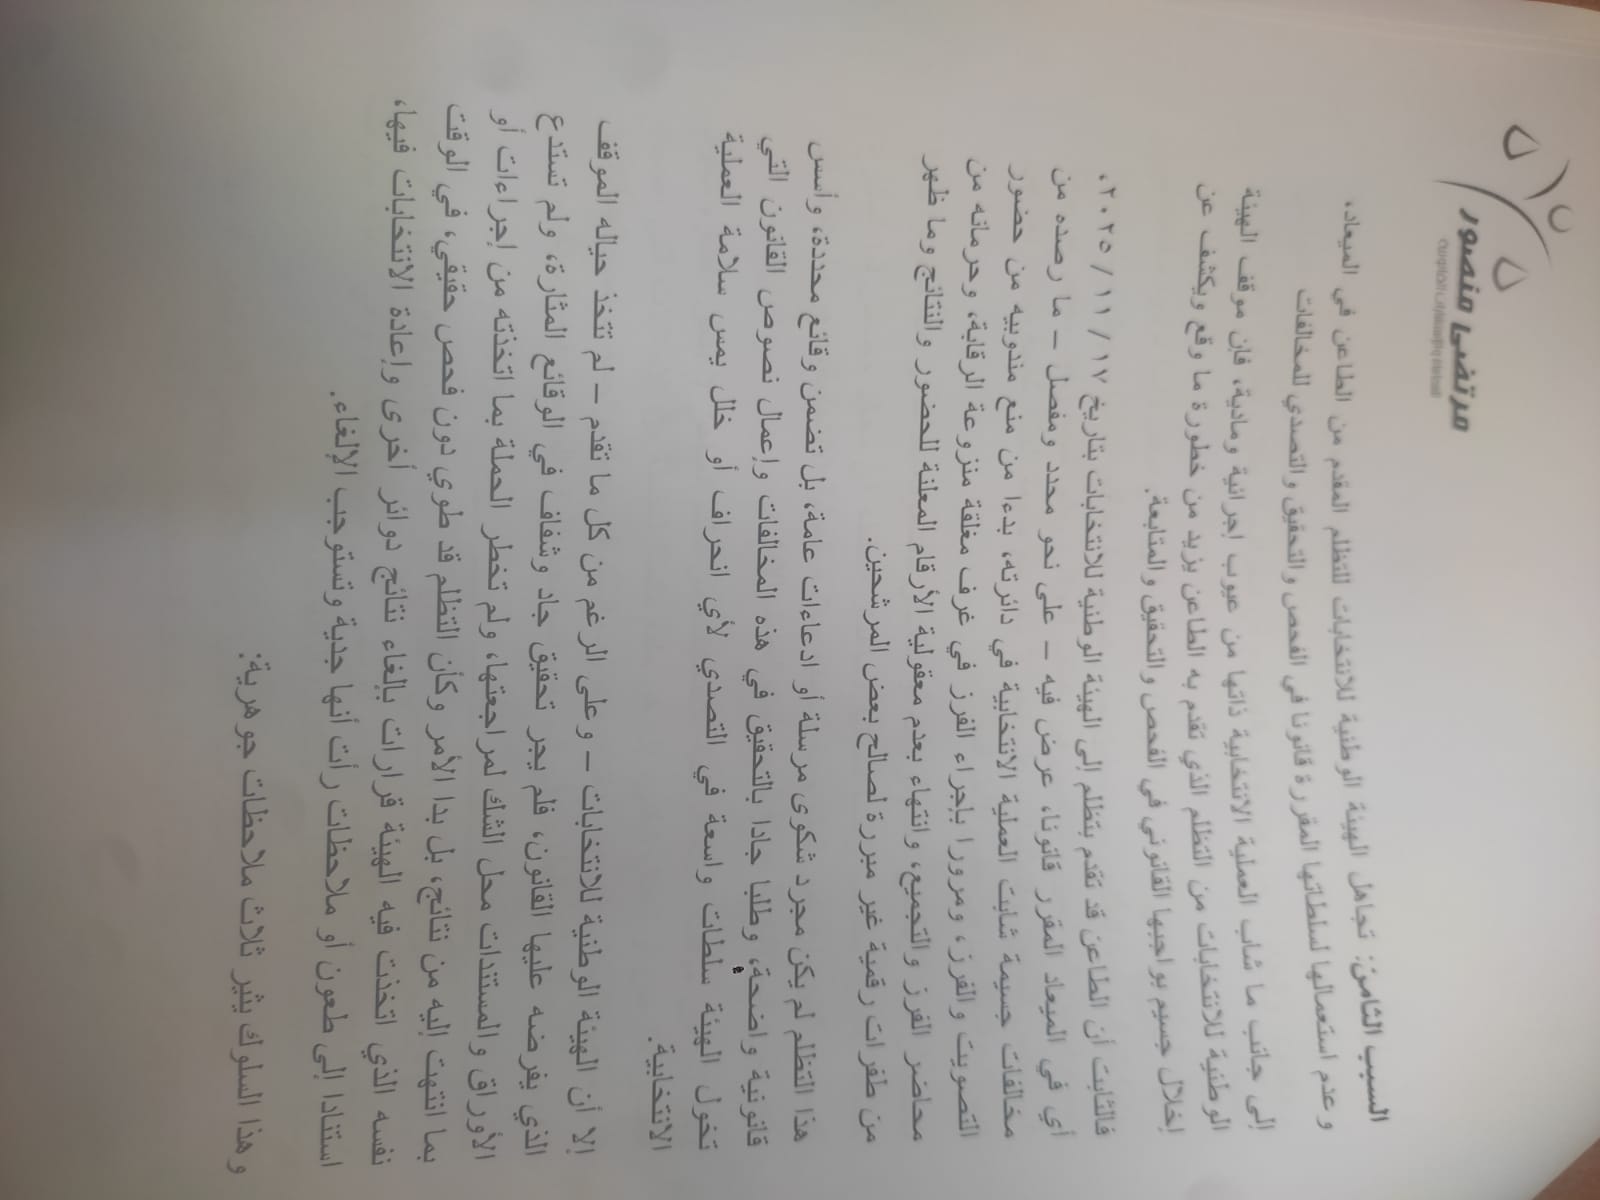 مرتضى منصور
السبب الثامن: تجاهل الهيئة الوطنية للانتخابات للتظلم المقدم من الطاعن في الميعاد،
وعدم استعمالها لسلطاتها المقررة قانونا في الفحص والتحقيق والتصدي للمخالفات
إلى جانب ما شاب العملية الانتخابية ذاتها من عيوب اجرائية ومادية، فإن موقف الهيئة
الوطنية للانتخابات من التظلم الذي تقدم به الطاعن يزيد من خطورة ما وقع ويكشف عن
إخلال جسيم بواجبها القانوني في الفحص والتحقيق والمتابعة.
فالثابت أن الطاعن قد تقدم بتظلم إلى الهيئة الوطنية للانتخابات بتاريخ ١٧ / ١١ / ٢٠٢٥،
أي في الميعاد المقرر قانونا، عرض فيه – على نحو محدد ومفصل – ما رصده من
مخالفات جسيمة شابت العملية الانتخابية في دائرته، بدءا من منع مندوبيه من حضور
التصويت والفرز، ومرورا بإجراء الفرز في غرف مغلقة منزوعة الرقابة، وحرمانه من
محاضر الفرز والتجميع، وانتهاء بعدم معقولية الأرقام المعلنة للحضور والنتائج وما ظهر
من طفرات رقمية غير مبررة لصالح بعض المرشحين.
هذا التظلم لم يكن مجرد شكوى مرسلة أو ادعاءات عامة، بل تضمن وقائع محددة، وأسس
قانونية واضحة، وطلبا جادا بالتحقيق في هذه المخالفات وإعمال نصوص القانون التي
تخول الهيئة سلطات واسعة في التصدي لأي انحراف أو خلل يمس سلامة العملية
الانتخابية.
إلا أن الهيئة الوطنية للانتخابات – وعلى الرغم من كل ما تقدم – لم تتخذ حياله الموقف
الذي يفرضه عليها القانون، فلم يجر تحقيق جاد وشفاف في الوقائع المثارة، ولم تستدع
الأوراق والمستندات محل الشك لمراجعتها، ولم تخطر الحملة بما اتخذته من إجراءات أو
بما انتهت إليه من نتائج، بل بدا الأمر وكأن التظلم قد طوي دون فحص حقيقي، في الوقت
نفسه الذي اتخذت فيه الهيئة قرارات بإلغاء نتائج دوائر أخرى وإعادة الانتخابات فيها،
استنادا إلى طعون أو ملاحظات رأت أنها جدية وتستوجب الإلغاء.
وهذا السلوك يثير ثلاث ملاحظات جوهرية: